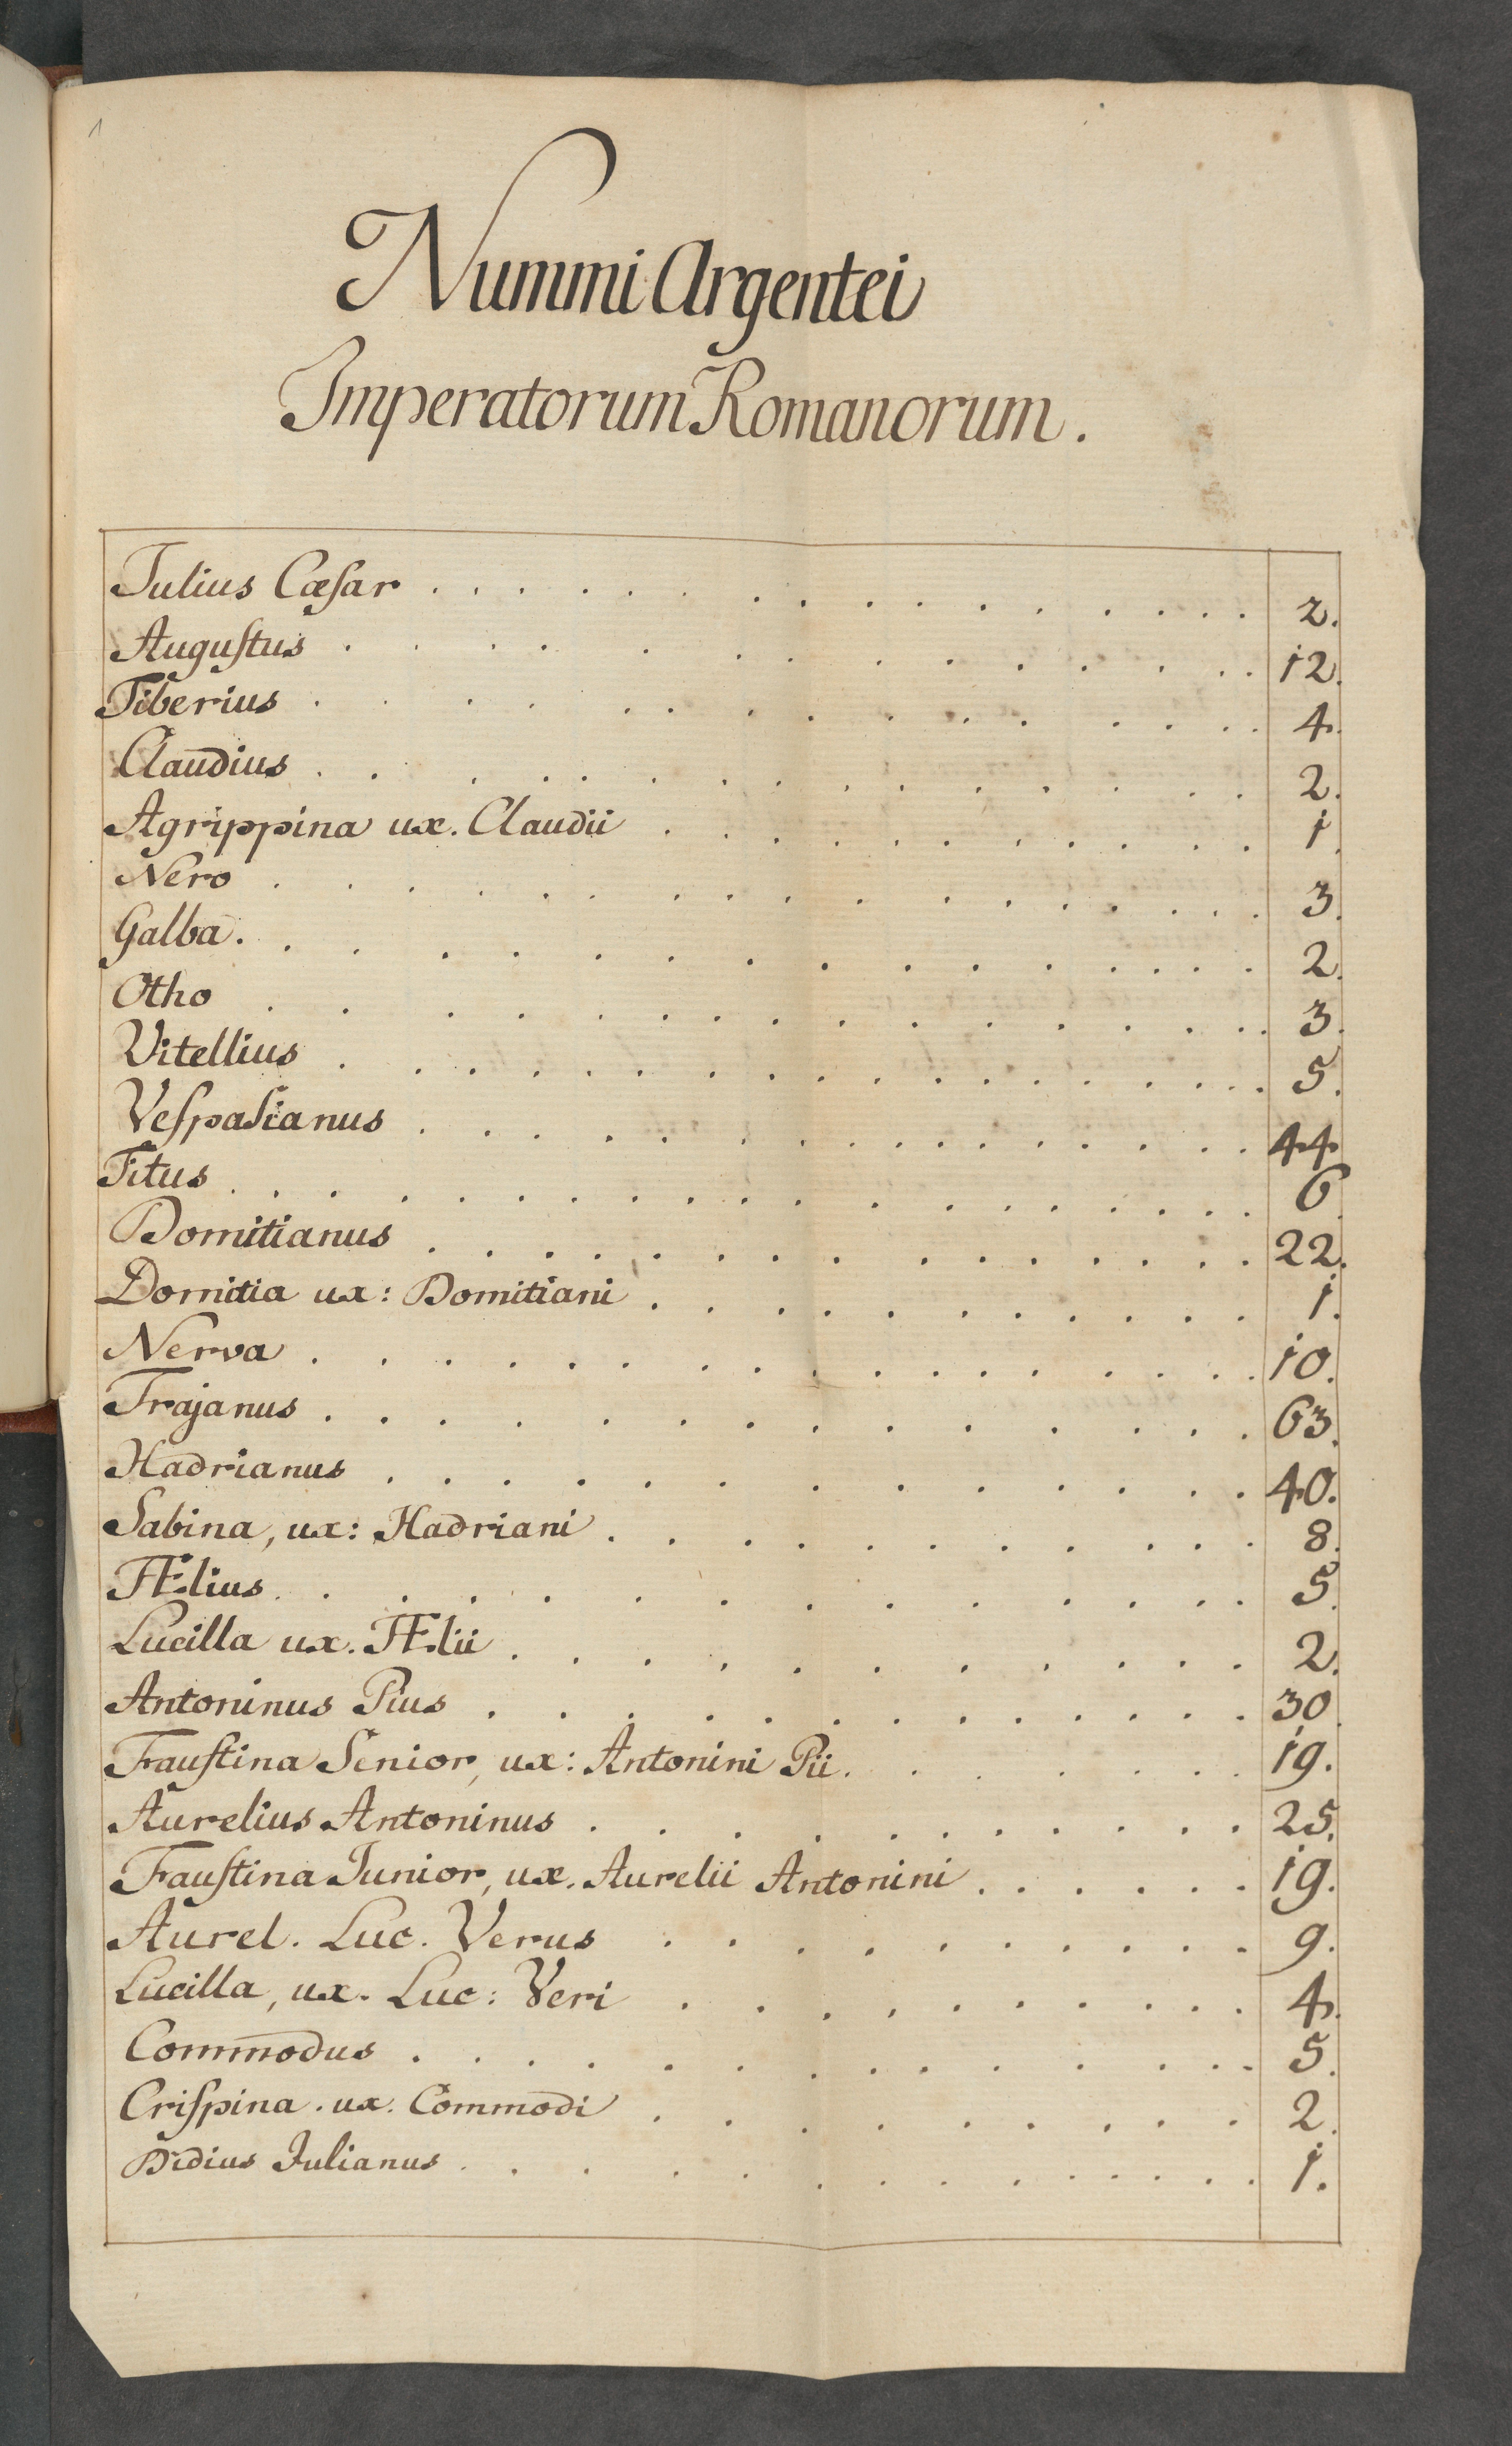 1
Nummi Argentei
Imperatorum Romanorum.
Julius Cæſar . . . . . . . . . . . . . . . 2.
Auguſtus . . . . . . . . . . . . . . 12.
Tiberius . . . . . . . . . . . . . . . 4.
Claudius . . . . . . . . . . . . . . . 2.
Agrippina ux. Claudii . . . . . . . . . . . 1.
Nero . . . . . . . . . . . . . . . . 3.
Galba . . . . . . . . . . . . . . . 2.
Otho . . . . . . . . . . . . . . . . 3.
Vitellius . . . . . . . . . . . . . . . . 5.
Veſpasianus . . . . . . . . . . . . . . . 44.
Titus . . . . . . . . . . . . . . . . . 6.
Domitianus . . . . . . . . . . . . . . . 22.
Domitia ux: Domitiani . . . . . . . . . . . 1.
Nerva . . . . . . . . . . . . . . . . 10.
Trajanus . . . . . . . . . . . . . . . 63.
Hadrianus . . . . . . . . . . . . . 40.
Sabina, ux: Hadriani . . . . . . . . . . . 8.
Ælius . . . . . . . . . . . . . . . 5.
Lucilla ux. Ælii . . . . . . . . . . . . 2.
Antoninus Pius . . . . . . . . . . . . . 30.
Fauſtina Senior, ux: Antonini Pii . . . . . . . 19.
Aurelius Antoninus . . . . . . . . . . . . 25.
Fauſtina Junior, ux. Aurelii Antonini . . . . . . 19.
Aurel. Luc. Verus . . . . . . . . . . 9.
Lucilla, ux. Luc: Veri . . . . . . . . . . 4.
Commodus . . . . . . . . . . . . . . 5.
Criſpina . ux. Commodi . . . . . . . . . . 2.
Didius Julianus . . . . . . . . . . . . . 1.